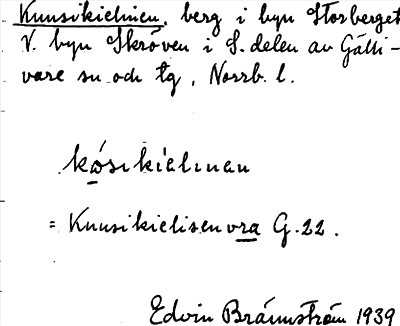 Kuusikielinen, berg i byn Storberget
V. byn Skröven i S. delen av Gälli-
vare sn och tg, Norrb. l.
kǫ́sikìelinen
= Kuusikielisenvra G.22.
Edvin Brännström 1939